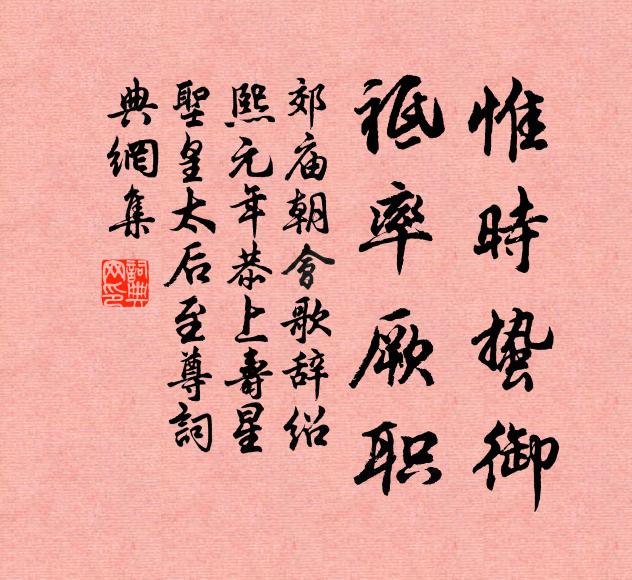 惟時蛰御
祗率厥职
郊庙朝會歌辞绍
熙元年恭上壽星
聖皇太后至尊詞
典網集
詞典網印